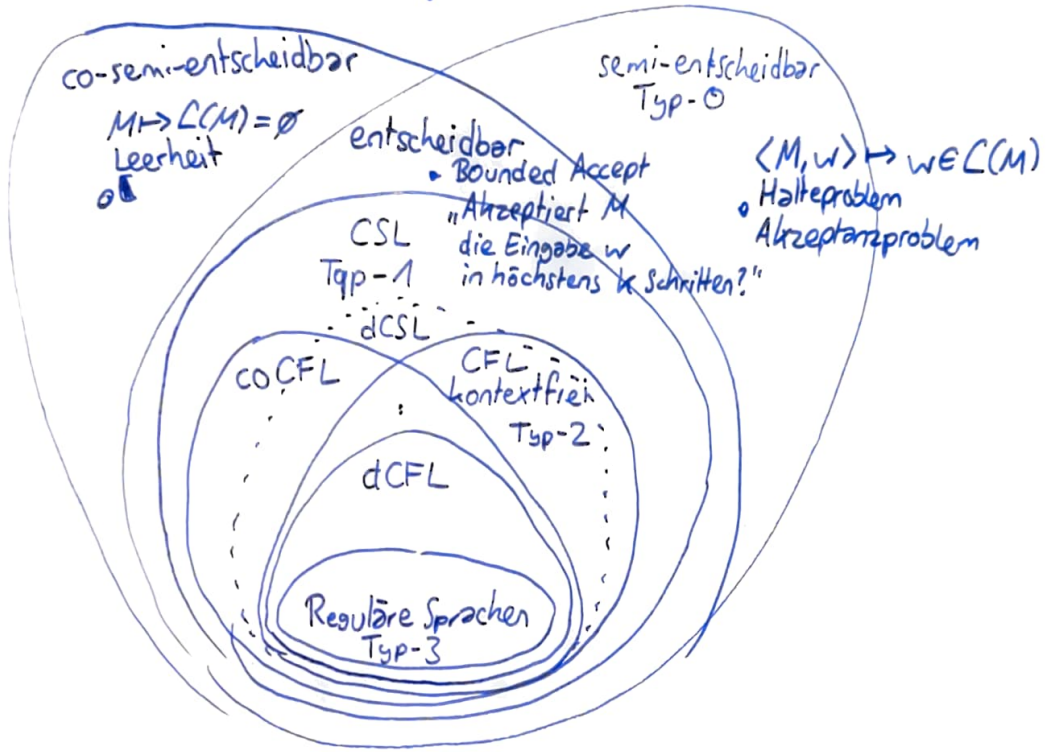 co-semi-entscheidbar
M↦ L(M)=∅
Leerheit
semi-entscheidbar
Typ-0
⟨M,w⟩ ↦ w∈L(M)
Halteproblem
Akzeptanzproblem
entscheidbar
• Bounded Accept
„Akzeptiert M
die Eingabe w
in höchstens k Schritten?"
CSL
Typ-1
dCSL
coCFL
CFL
kontextfrei
Typ-2
dCFL
Reguläre Sprachen
Typ-3